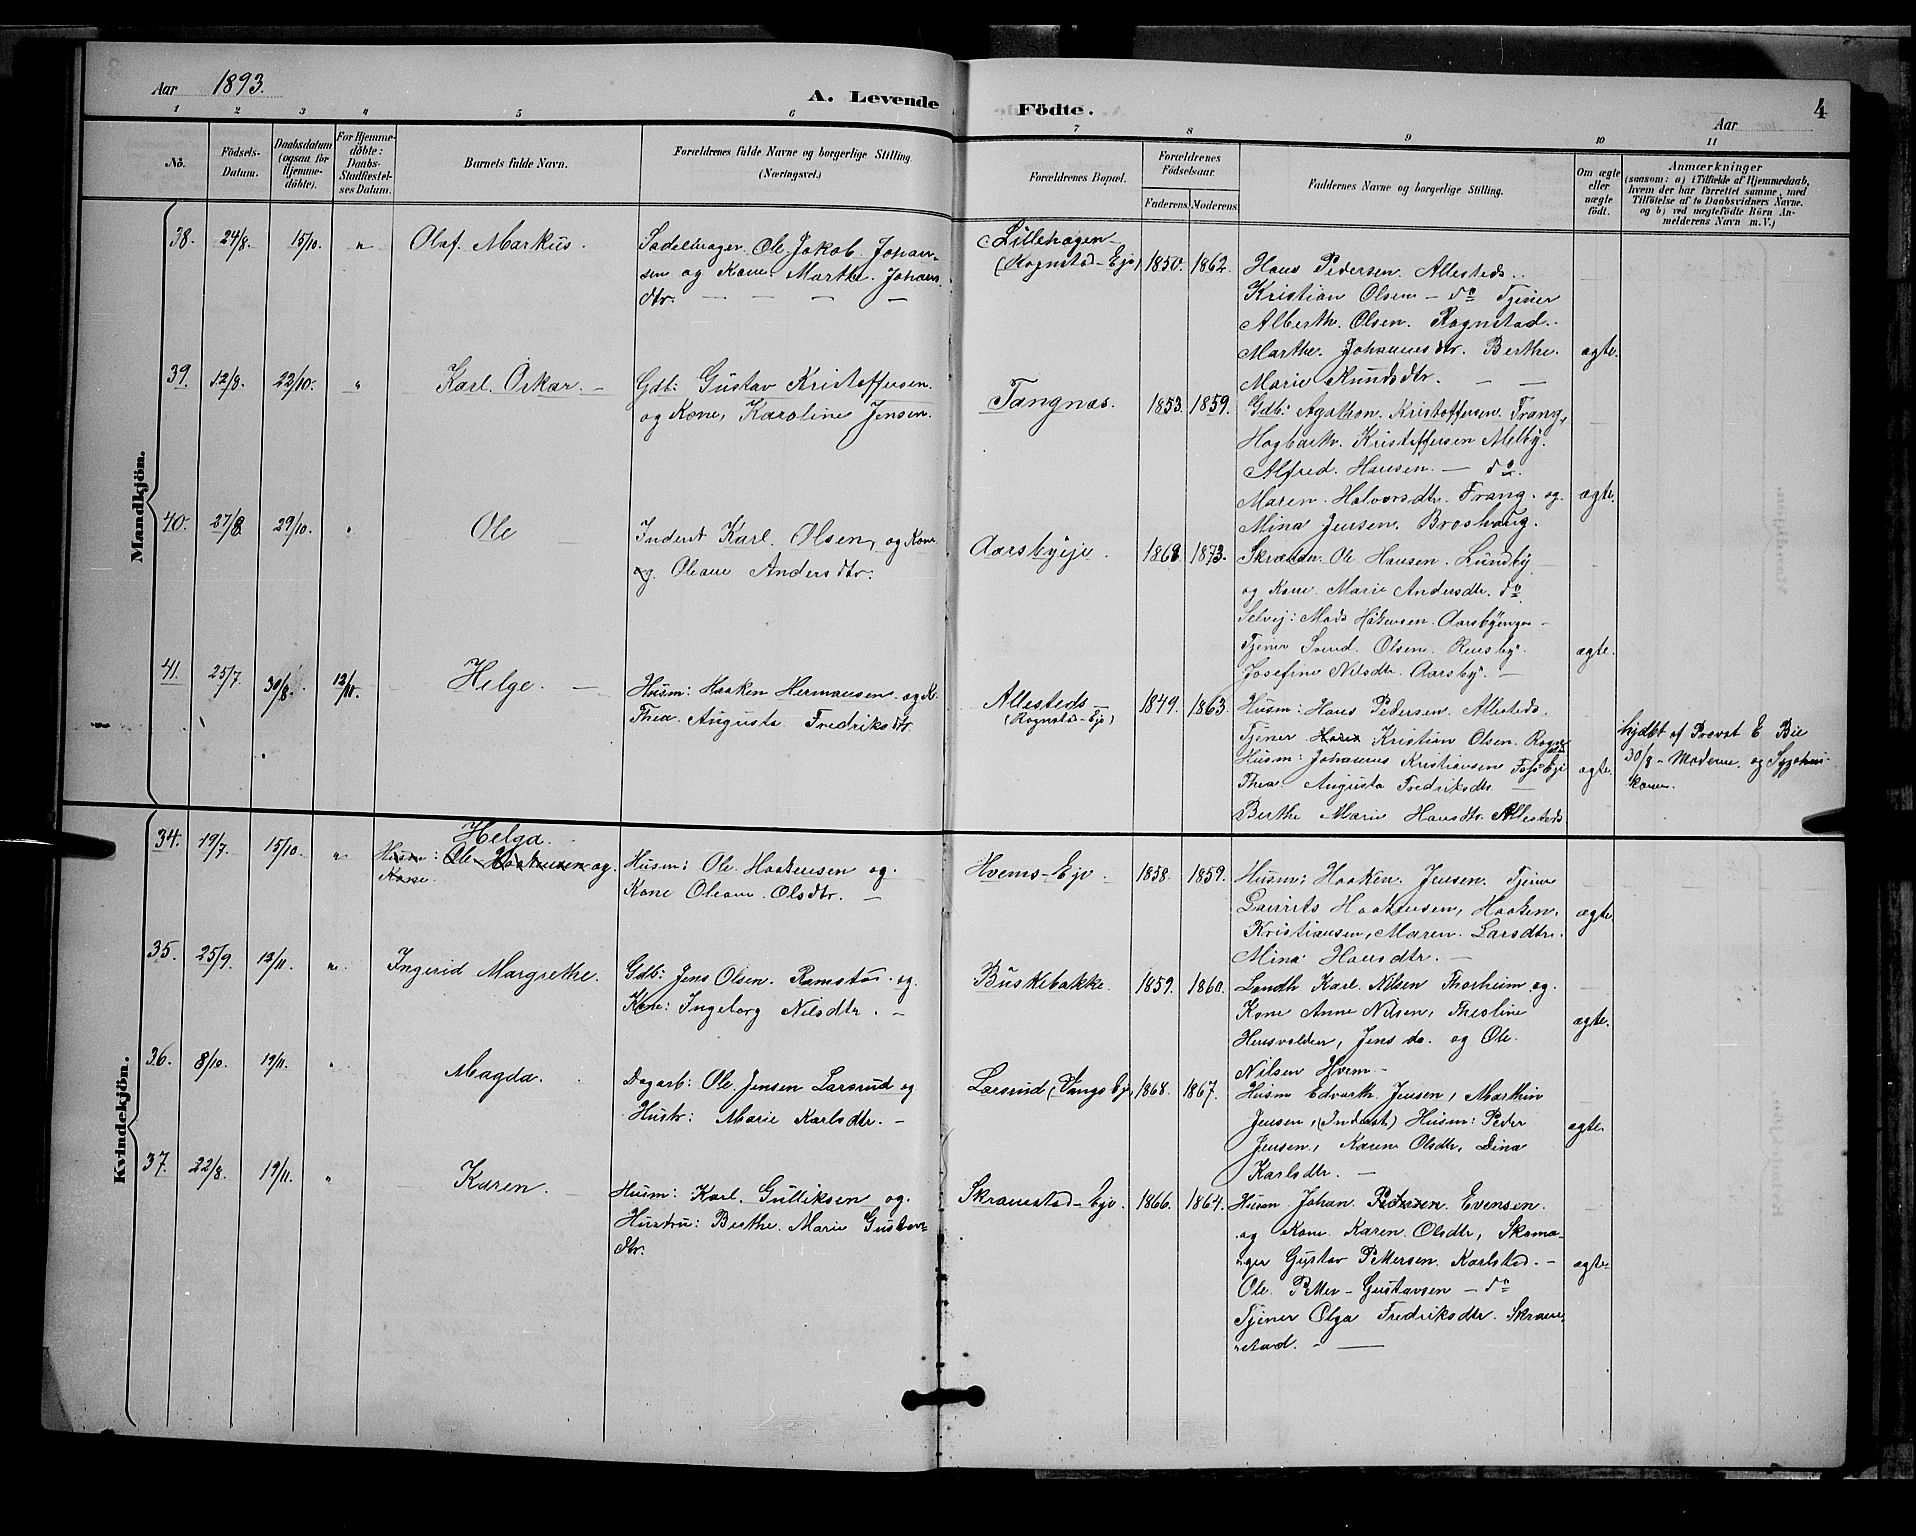 Aar 1893.
A. Levende Födte.
Aar
4
1 2 3 4 5 6 7 8 9 10 11
No.
Födsels-Datum.
Daabsdatum (ogsaa for Hjemme-döbte).
For Hjemme-döbte: Daabs-Stadfæstel-ses Datum.
Barnets fulde Navn.
Forældrenes fulde Navne og borgerlige Stilling.
(Næringsvei.)
Forældrenes Bopæl.
Forældrenes Födselsaar.
Faderens. Moderens.
Faddernes Navne og borgerlige Stilling.
Om ægte eller uægte födt.
Anmærkninger
(saasom: a) i Tilfælde af Hjemmedaab,
hvem der har forrettet samme, med
Tilföielse af to Daabsvidners Navne.
og b) ved uægtefödte Börn An-
melderens Navn m. V.)
Mandkjön.
38. 24/8. 15/10. "
Olaf Markus.
Sadelmager Ole Jakob Johan-
sen og Kone Marthe Johans
dtr. — — — —
Lillehagen
(Rognstad-Eje)
1850. 1862.
Hans Pedersen. Allesteds.
Kristian Olsen — do Tjener
Alberth. Olsen. Rognstad.
Marthe. Johannesdtr. Berthe.
Marie Knudsdtr. — —
ægte.
39. 12/8. 22/10. "
Karl. Oskar. —
Gdb: Gustav Kristoffersen
og Kone, Karoline Jensen.
Tangnæs.
1853. 1859.
Gdb: Agathon. Kristoffersen. Frang,
Hagbarth. Kristoffersen Melby.
Alfred. Hansen. — do.
Maren. Halvorsdtr. Frang. og
Mina Jensen. Broshaug.
ægte.
40. 27/8. 29/10. "
Ole
Inderst Karl. Olsen, og Kone
og. Oleane Andersdtr.
Aarsbyeje.
1868 1873.
Skrædder. Ole Hansen. Lundby
og Kone. Marie Andersdtr. do
Selvej: Mads Håkensen. Aarsbyengen
Tjener Svend Olsen. Rensby.
Josefine Nilsdtr. Aarsby.
ægte.
41. 25/7. 30/8. 12/11.
Helge. —
Husm: Haaken Hermansen. og K.
Thea. Augusta Fredriksdtr.
Allesteds —
(Rognstad-Eje)
1849. 1863.
Husm: Hans Pedersen. Allesteds.
Tjener Hans Kristian Olsen. Rogns
Husm: Johannes Kristiansen Foss Eje
Thea Augusta Fredriksdtr. —
Berthe Marie Hansdtr Allesteds
ægte.
hjdbt af Provst E Bie
30/8 - Moderen. og
konen.
Kvindekjön.
34. 19/7. 15/10. "
Helga.
Husm: Ole Haakensen og.
Kone.
Husm: Ole. Haakensen og.
Kone Oleane. Olsdtr. —
Hvems-Eje.
1858. 1859.
Husm: Haaken. Jensen. Tjener
Laurits Haakensen, Haaken.
Kristiansen, Maren. Larsdtr.
Mina Hansdtr. —
ægte.
35. 25/9. 12/11. "
Ingerid Margrethe.
Gdb: Jens Olsen. Ramstad. og.
Kone: Ingeborg Nilsdtr. —
Buskebakke.
1859. 1860.
Landh Karl. Nilsen Thorheim og
Kone Anne Nilsen, Thesline
Hensvolden, Jens do. og Ole.
Nilsen Hvem. —
ægte.
36. 8/10. 19/11. "
Magda.
Dagarb: Ole. Jensen Larsrud og
Hustr: Marie Karlsdtr. —
Larsrud (Vangs Eje)
1868. 1867.
Husm Edvarth. Jensen, Marthin
Jensen, (Inderst) Husm: Peder
Jensen, Karen Olsdtr, Dina
Karlsdtr. —
ægte.
37. 22/8. 19/11. "
Karen. —
Husm: Karl. Gulliksen og.
Hustru: Berthe. Marie Gustav-
dtr.
Skranestad-Eje.
1866. 1864.
Husm Johan. Pedersen Evensen.
og Kone Karen Olsdtr, Skoma-
ger Gustav Pettersen. Karlstad. —
Ole Petter Gustavsen — do
Tjener Olga Fredriksdtr. Skrane
stad. — —
ægte.